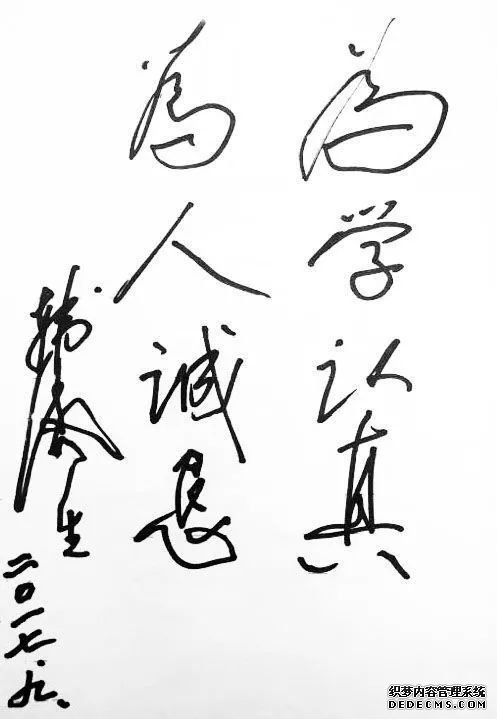 为学认真
为人诚恳
二〇一七.九.
织梦内容管理系统
DEDECMS.COM